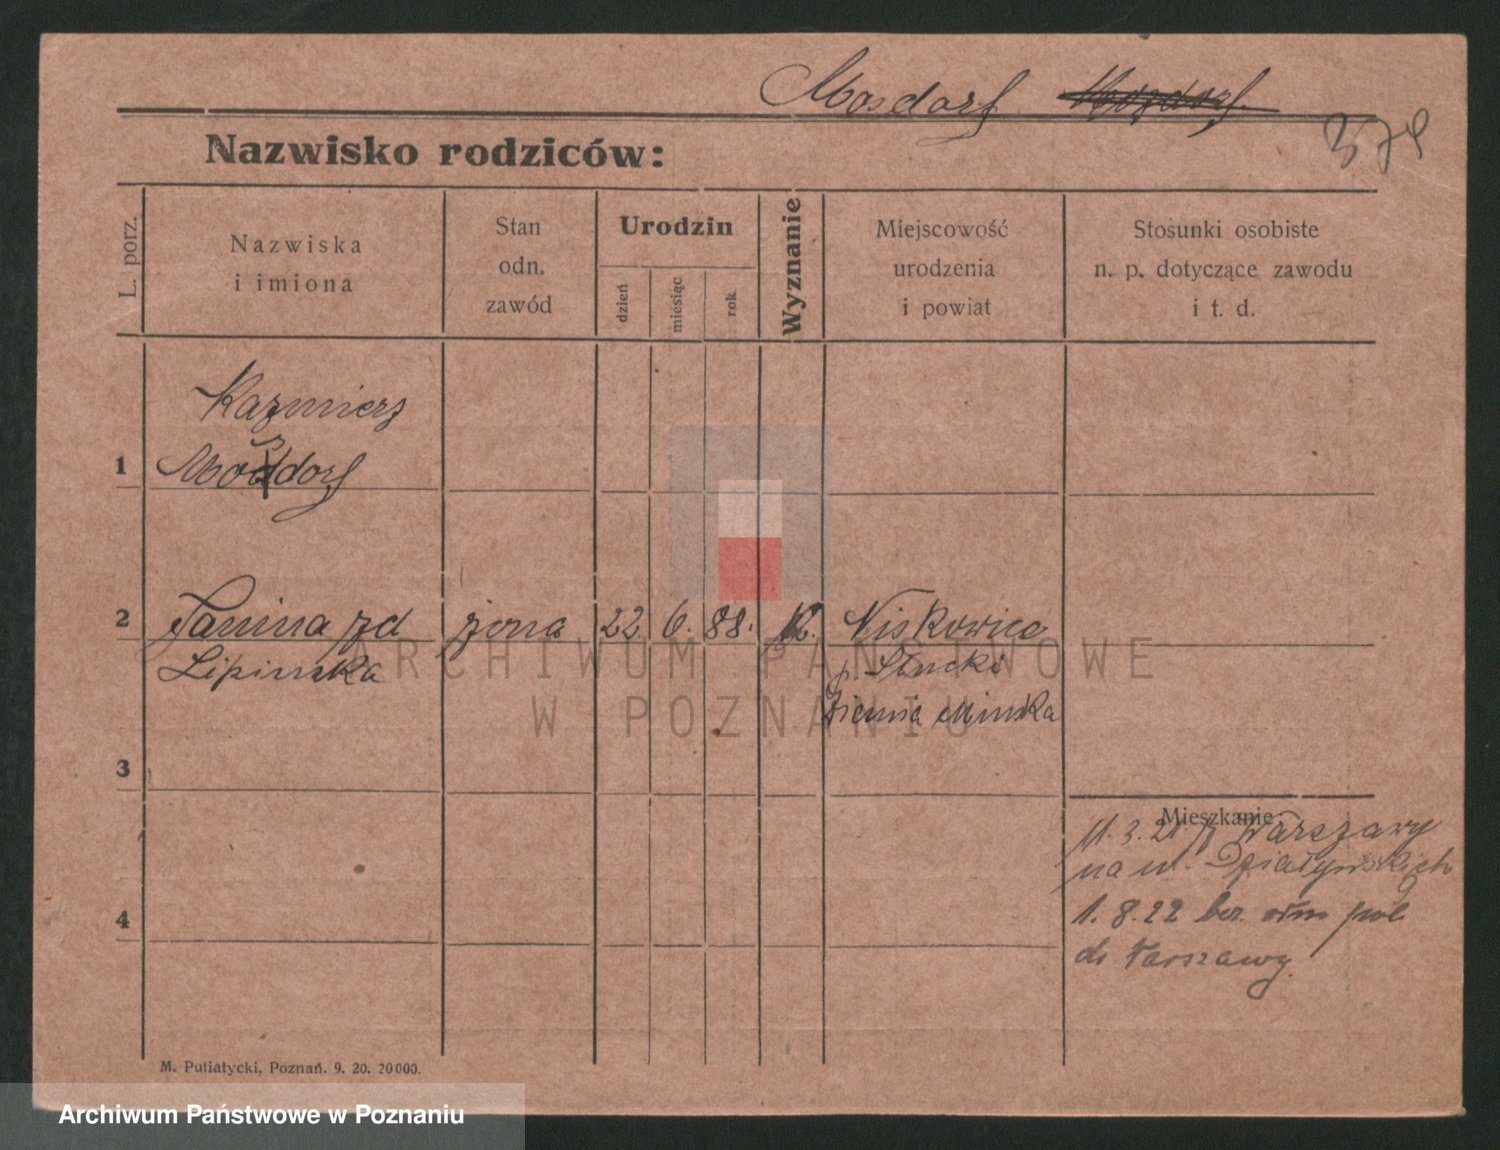 Mosdorf Mozdorf.
Nazwisko rodziców:
L. porz.
Nazwiska
i imiona
Stan
odn.
zawód
Urodzin
dzień
miesiąc
rok
Wyznanie
Miejscowość
urodzenia
i powiat
Stosunki osobiste
n. p. dotyczące zawodu
i t. d.
Kazmierz
1 Mosdorf
2 Janina zd żona 22. 6. 88. K. Niskowice
Lipinska Słucki
ziemia Minska
3
Mieszkanie
11.3.21. z Warszawy
na ul. Działyńskich
4
1. 8. 22 bez. odm pol
do Warszawy.
M. Putiatycki, Poznań. 9. 20. 20000.
ARCHIWUM PAŃSTWOWE
W POZNANIU
Archiwum Państwowe w Poznaniu